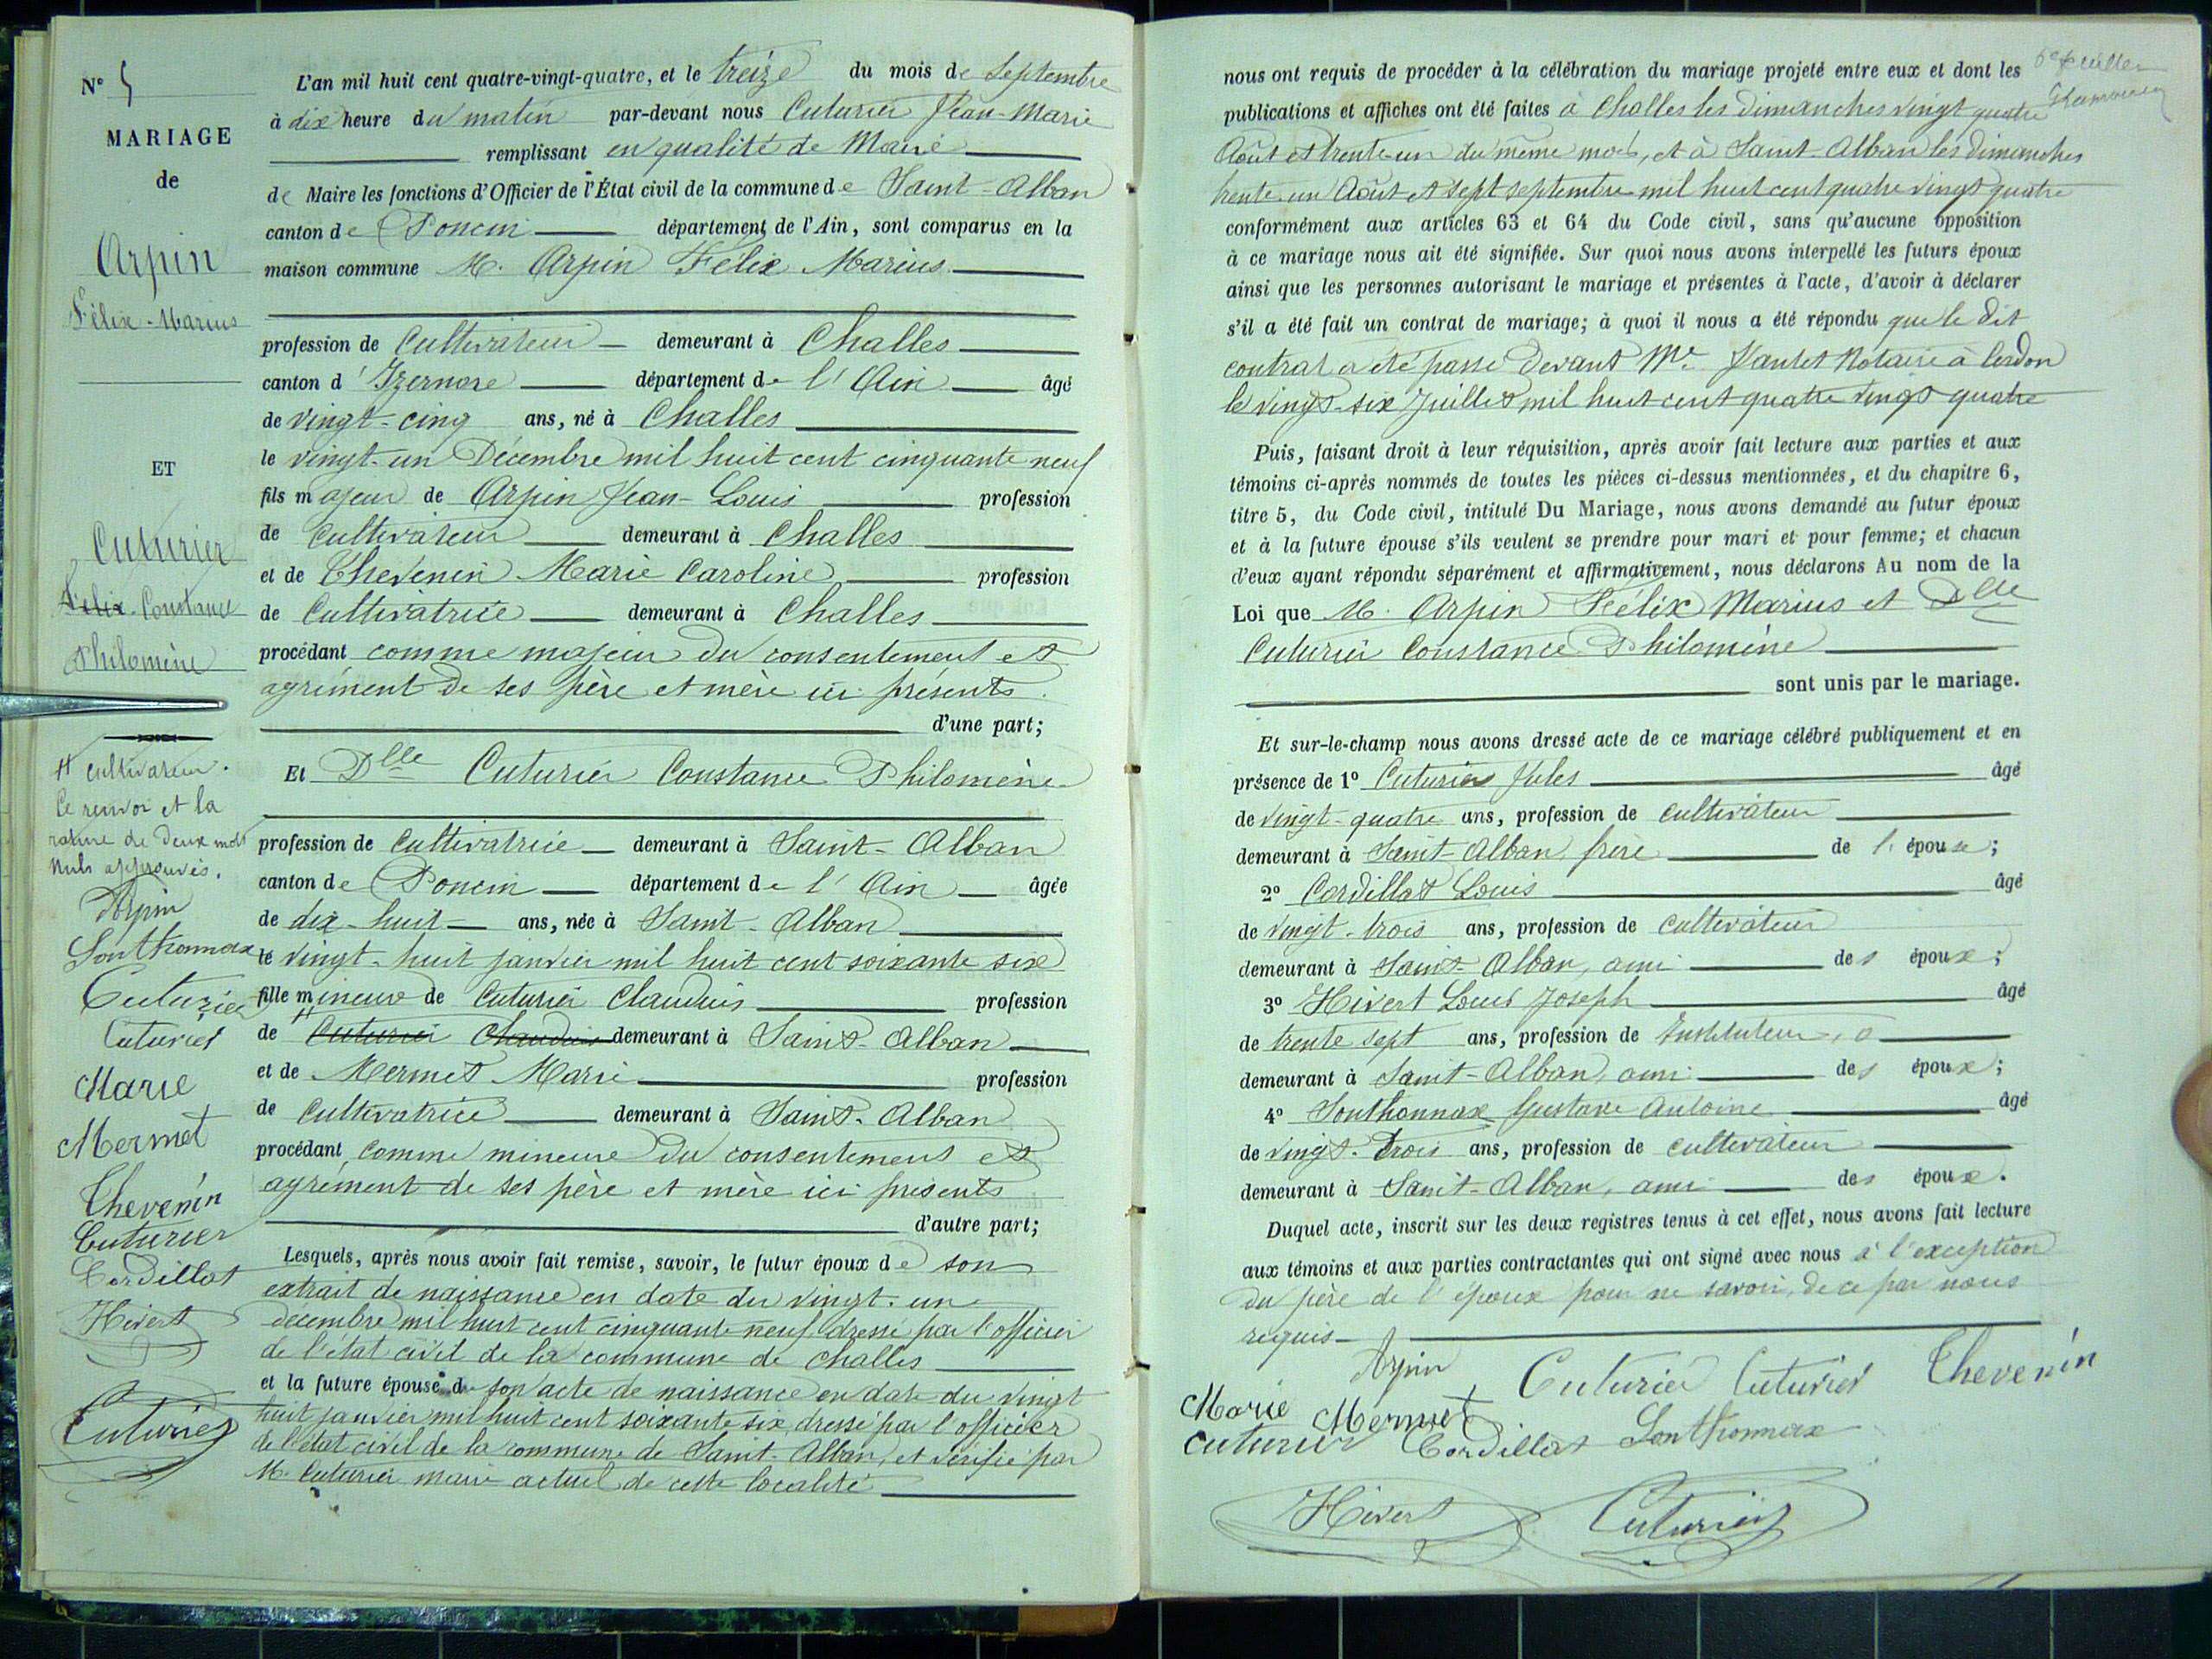 N° 5
MARIAGE
de
Arpin
Félix-Marius
ET
Cuturier
Félix Constance
Philomène
# cultivateur.
Ce renvoi et la
rature de deux mots
nuls approuvés.
Arpin
Sonthonnax
Cuturier
Cuturier
Marie
Mermet
Thevenin
Cuturier
Cordillat
Hivert
Cuturier
L'an mil huit cent quatre-vingt-quatre, et le treize du mois de Septembre
à dix heure du matin par-devant nous Cuturier Jean-Marie
remplissant en qualité de Maire
de Maire les fonctions d'Officier de l'État civil de la commune de Saint-Alban
canton de Poncin département de l'Ain, sont comparus en la
maison commune M. Arpin Félix Marius
profession de Cultivateur demeurant à Challes
canton d'Izernore département de l'Ain âgé
de vingt-cinq ans, né à Challes
le vingt-un Décembre mil huit cent cinquante neuf
fils majeur de Arpin Jean-Louis profession
de Cultivateur demeurant à Challes
et de Thevenin Marie Caroline profession
de Cultivatrice demeurant à Challes
procédant comme majeur du consentement et
agrément de ses père et mère ici présents.
d'une part;
Et Dlle Cuturier Constance Philomène
profession de Cultivatrice demeurant à Saint-Alban
canton de Poncin département de l'Ain âgée
de dix-huit ans, née à Saint-Alban
le vingt-huit janvier mil huit cent soixante six
fille mineure de Cuturier Claudius profession
de # Cuturier Claudius demeurant à Saint-Alban
et de Mermet Marie profession
de Cultivatrice demeurant à Saint-Alban
procédant comme mineure du consentement et
agrément de ses père et mère ici présents
d'autre part;
Lesquels, après nous avoir fait remise, savoir, le futur époux de son
extrait de naissance en date du vingt-un
décembre mil huit cent cinquante neuf dressé par l'officier
de l'état civil de la commune de Challes
et la future épouse de son acte de naissance en date du vingt
huit janvier mil huit cent soixante six, dressé par l'officier
de l'état civil de la commune de Saint-Alban, et vérifié par
M. Cuturier maire actuel de cette localité
nous ont requis de procéder à la célébration du mariage projeté entre eux et dont les
publications et affiches ont été faites à Challes les dimanches vingt quatre
Août et trente-un du même mois, et à Saint-Alban les dimanches
trente-un Août et sept septembre mil huit cent quatre vingt quatre
conformément aux articles 63 et 64 du Code civil, sans qu'aucune opposition
à ce mariage nous ait été signifiée. Sur quoi nous avons interpellé les futurs époux
ainsi que les personnes autorisant le mariage et présentes à l'acte, d'avoir à déclarer
s'il a été fait un contrat de mariage; à quoi il nous a été répondu que le dit
contrat a été passé devant Me Jantet Notaire à Cerdon
le vingt-six Juillet mil huit cent quatre vingt quatre
Puis, faisant droit à leur réquisition, après avoir fait lecture aux parties et aux
témoins ci-après nommés de toutes les pièces ci-dessus mentionnées, et du chapitre 6,
titre 5, du Code civil, intitulé Du Mariage, nous avons demandé au futur époux
et à la future épouse s'ils veulent se prendre pour mari et pour femme; et chacun
d'eux ayant répondu séparément et affirmativement, nous déclarons Au nom de la
Loi que M. Arpin Félix Marius et Dlle
Cuturier Constance Philomène
sont unis par le mariage.
Et sur-le-champ nous avons dressé acte de ce mariage célébré publiquement et en
présence de 1° Cuturier Jules âgé
de vingt-quatre ans, profession de cultivateur
demeurant à Saint-Alban, frère de l'épouse;
2° Cordillat Louis âgé
de vingt-trois ans, profession de cultivateur
demeurant à Saint-Alban, ami des époux;
3° Hivert Louis Joseph âgé
de trente sept ans, profession de Instituteur, à
demeurant à Saint-Alban, ami des époux;
4° Sonthonnax Gustave Antoine âgé
de vingt-trois ans, profession de cultivateur
demeurant à Saint-Alban, ami des époux.
Duquel acte, inscrit sur les deux registres tenus à cet effet, nous avons fait lecture
aux témoins et aux parties contractantes qui ont signé avec nous à l'exception
du père de l'époux pour ne savoir, de ce par nous
requis
Arpin Cuturier Cuturier Thevenin
Marie Mermet
Cuturier Cordillat Sonthonnax
Hivert Cuturier